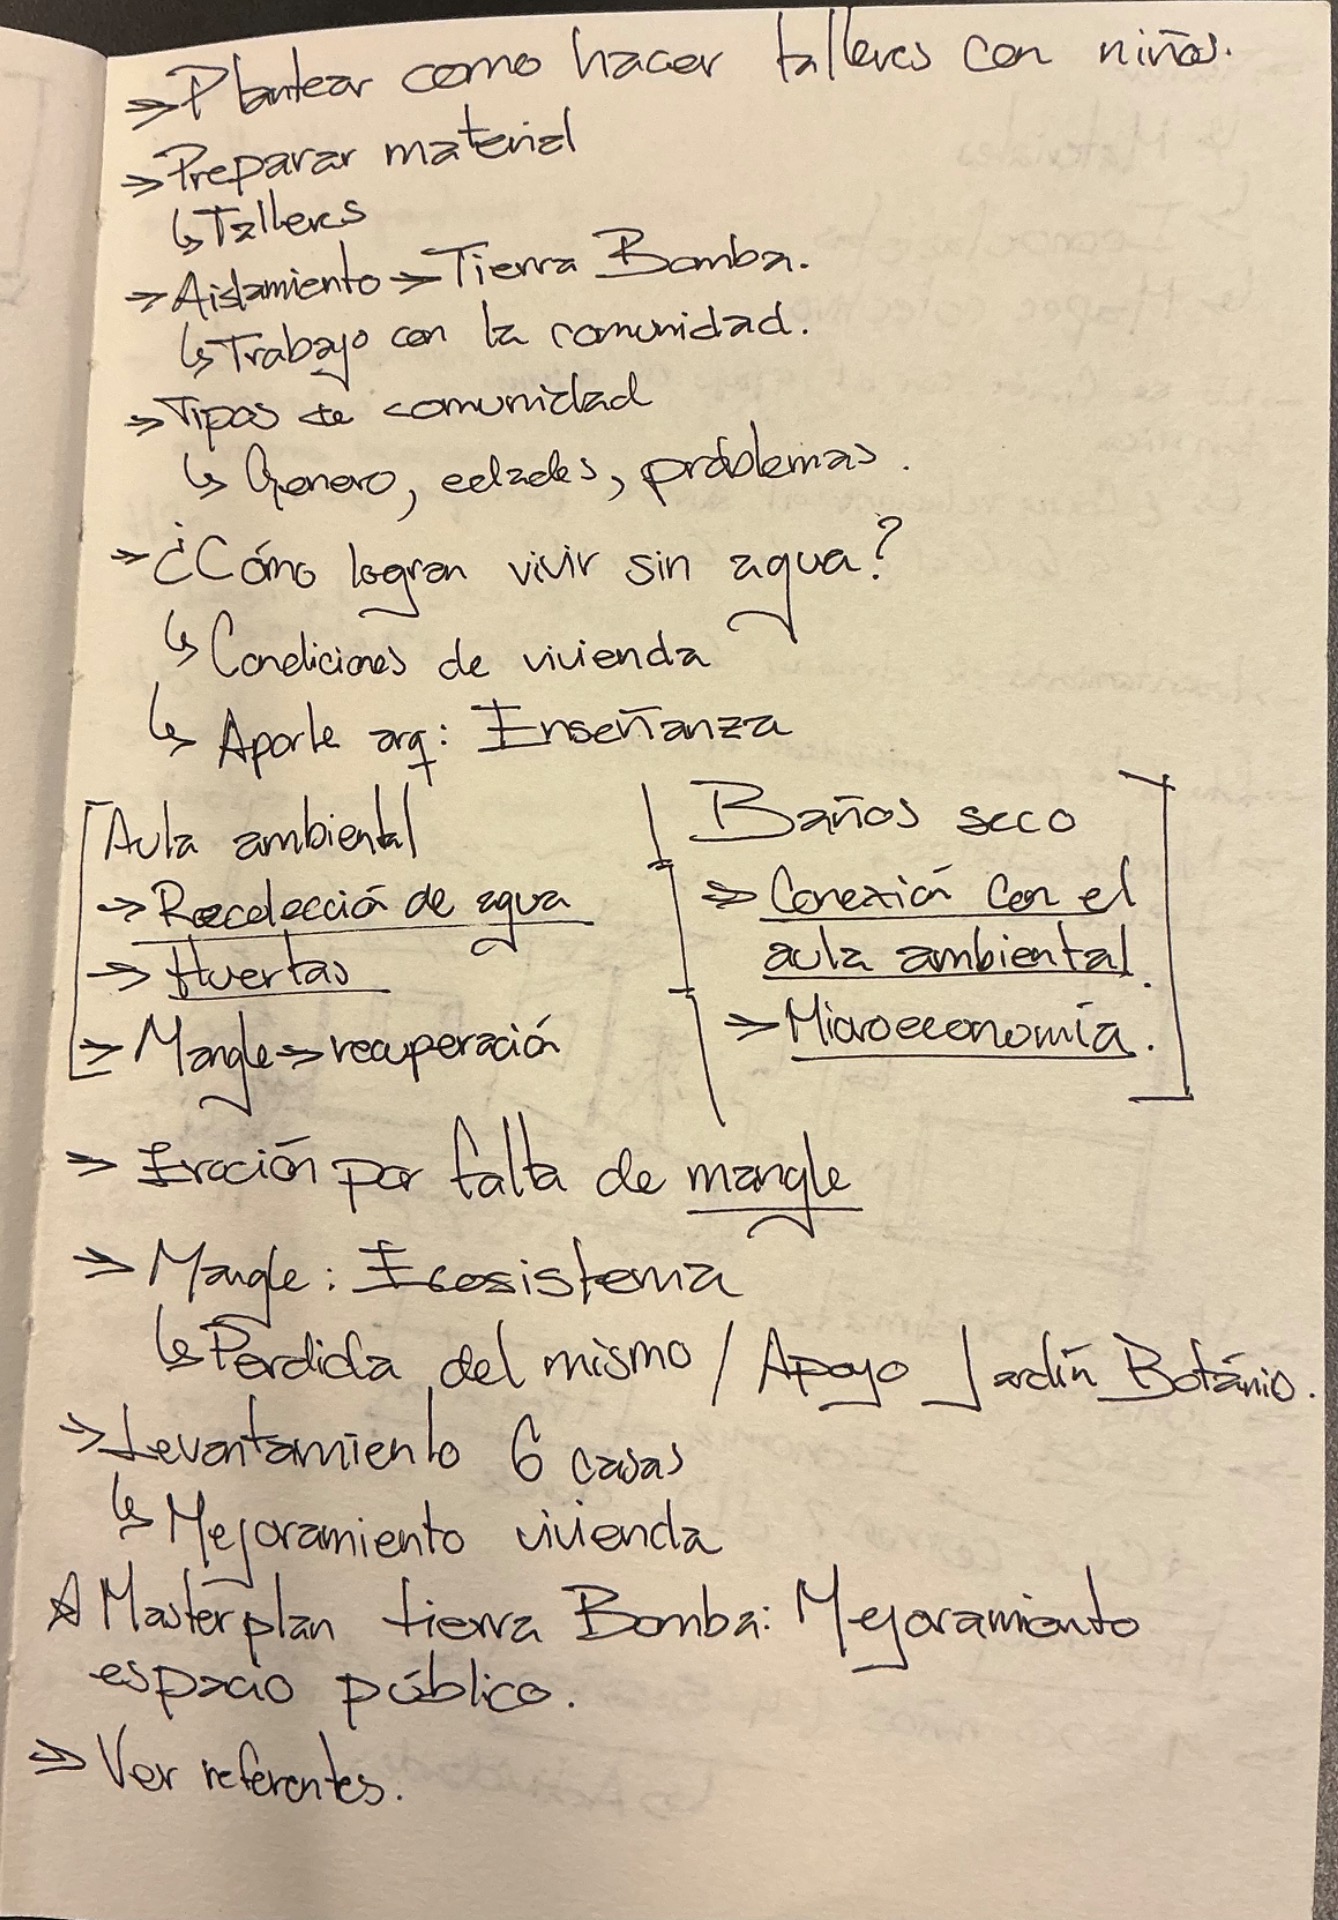 ⇒ Plantear como hacer talleres con niños.
⇒ Preparar material
↳ Talleres
⇒ Aislamiento → Tierra Bomba.
↳ Trabajo con la comunidad.
⇒ Tipos de comunidad
↳ Genero, edades, problemas.
⇒ ¿Cómo logran vivir sin agua?
↳ Condiciones de vivienda
↳ Aporte arq: Enseñanza
Aula ambiental
→ Recolección de agua
→ Huertas
⇒ Mangle ⇒ recuperación
Baños seco
⇒ Conexión con el
aula ambiental.
⇒ Microeconomía.
⇒ Eroción por falta de mangle
⇒ Mangle: Ecosistema
↳ Perdida del mismo / Apoyo Jardín Botánio.
⇒ Levantamiento 6 casas
↳ Mejoramiento vivienda
☆ Masterplan tierra Bomba: Mejoramiento
espacio público.
⇒ Ver referentes.